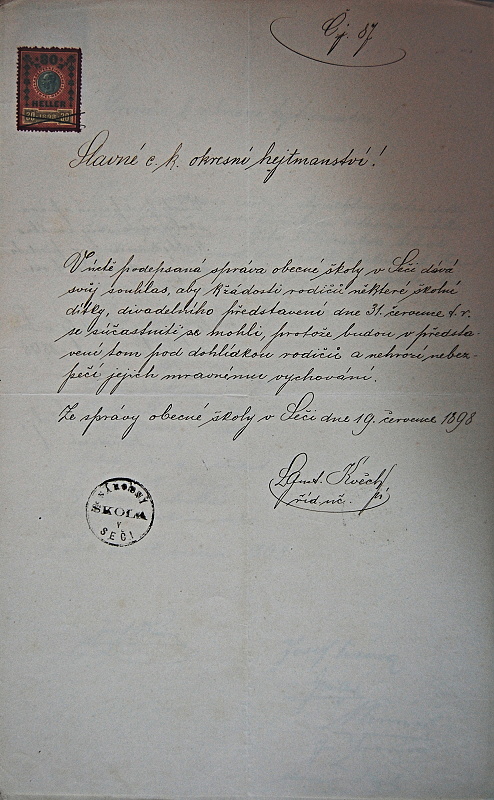 Čj. 87
80
HELLER
1898
Slavné c. k. okresní hejtmanství!
V úctě podepsaná správa obecné školy v Seči dává
svůj souhlas, aby k žádosti rodičů některé školní
dítky, divadelního představení dne 31. července t. r.
se súčastniti se mohli, protože budou v předsta-
vení tom pod dohlídkou rodičů a nehrozí nebez-
pečí jejich mravnému vychování.
Ze správy obecné školy v Seči dne 19. července 1898
Ant. Kvěch
říd. uč.
NÁRODNÍ
ŠKOLA
V
SEČI